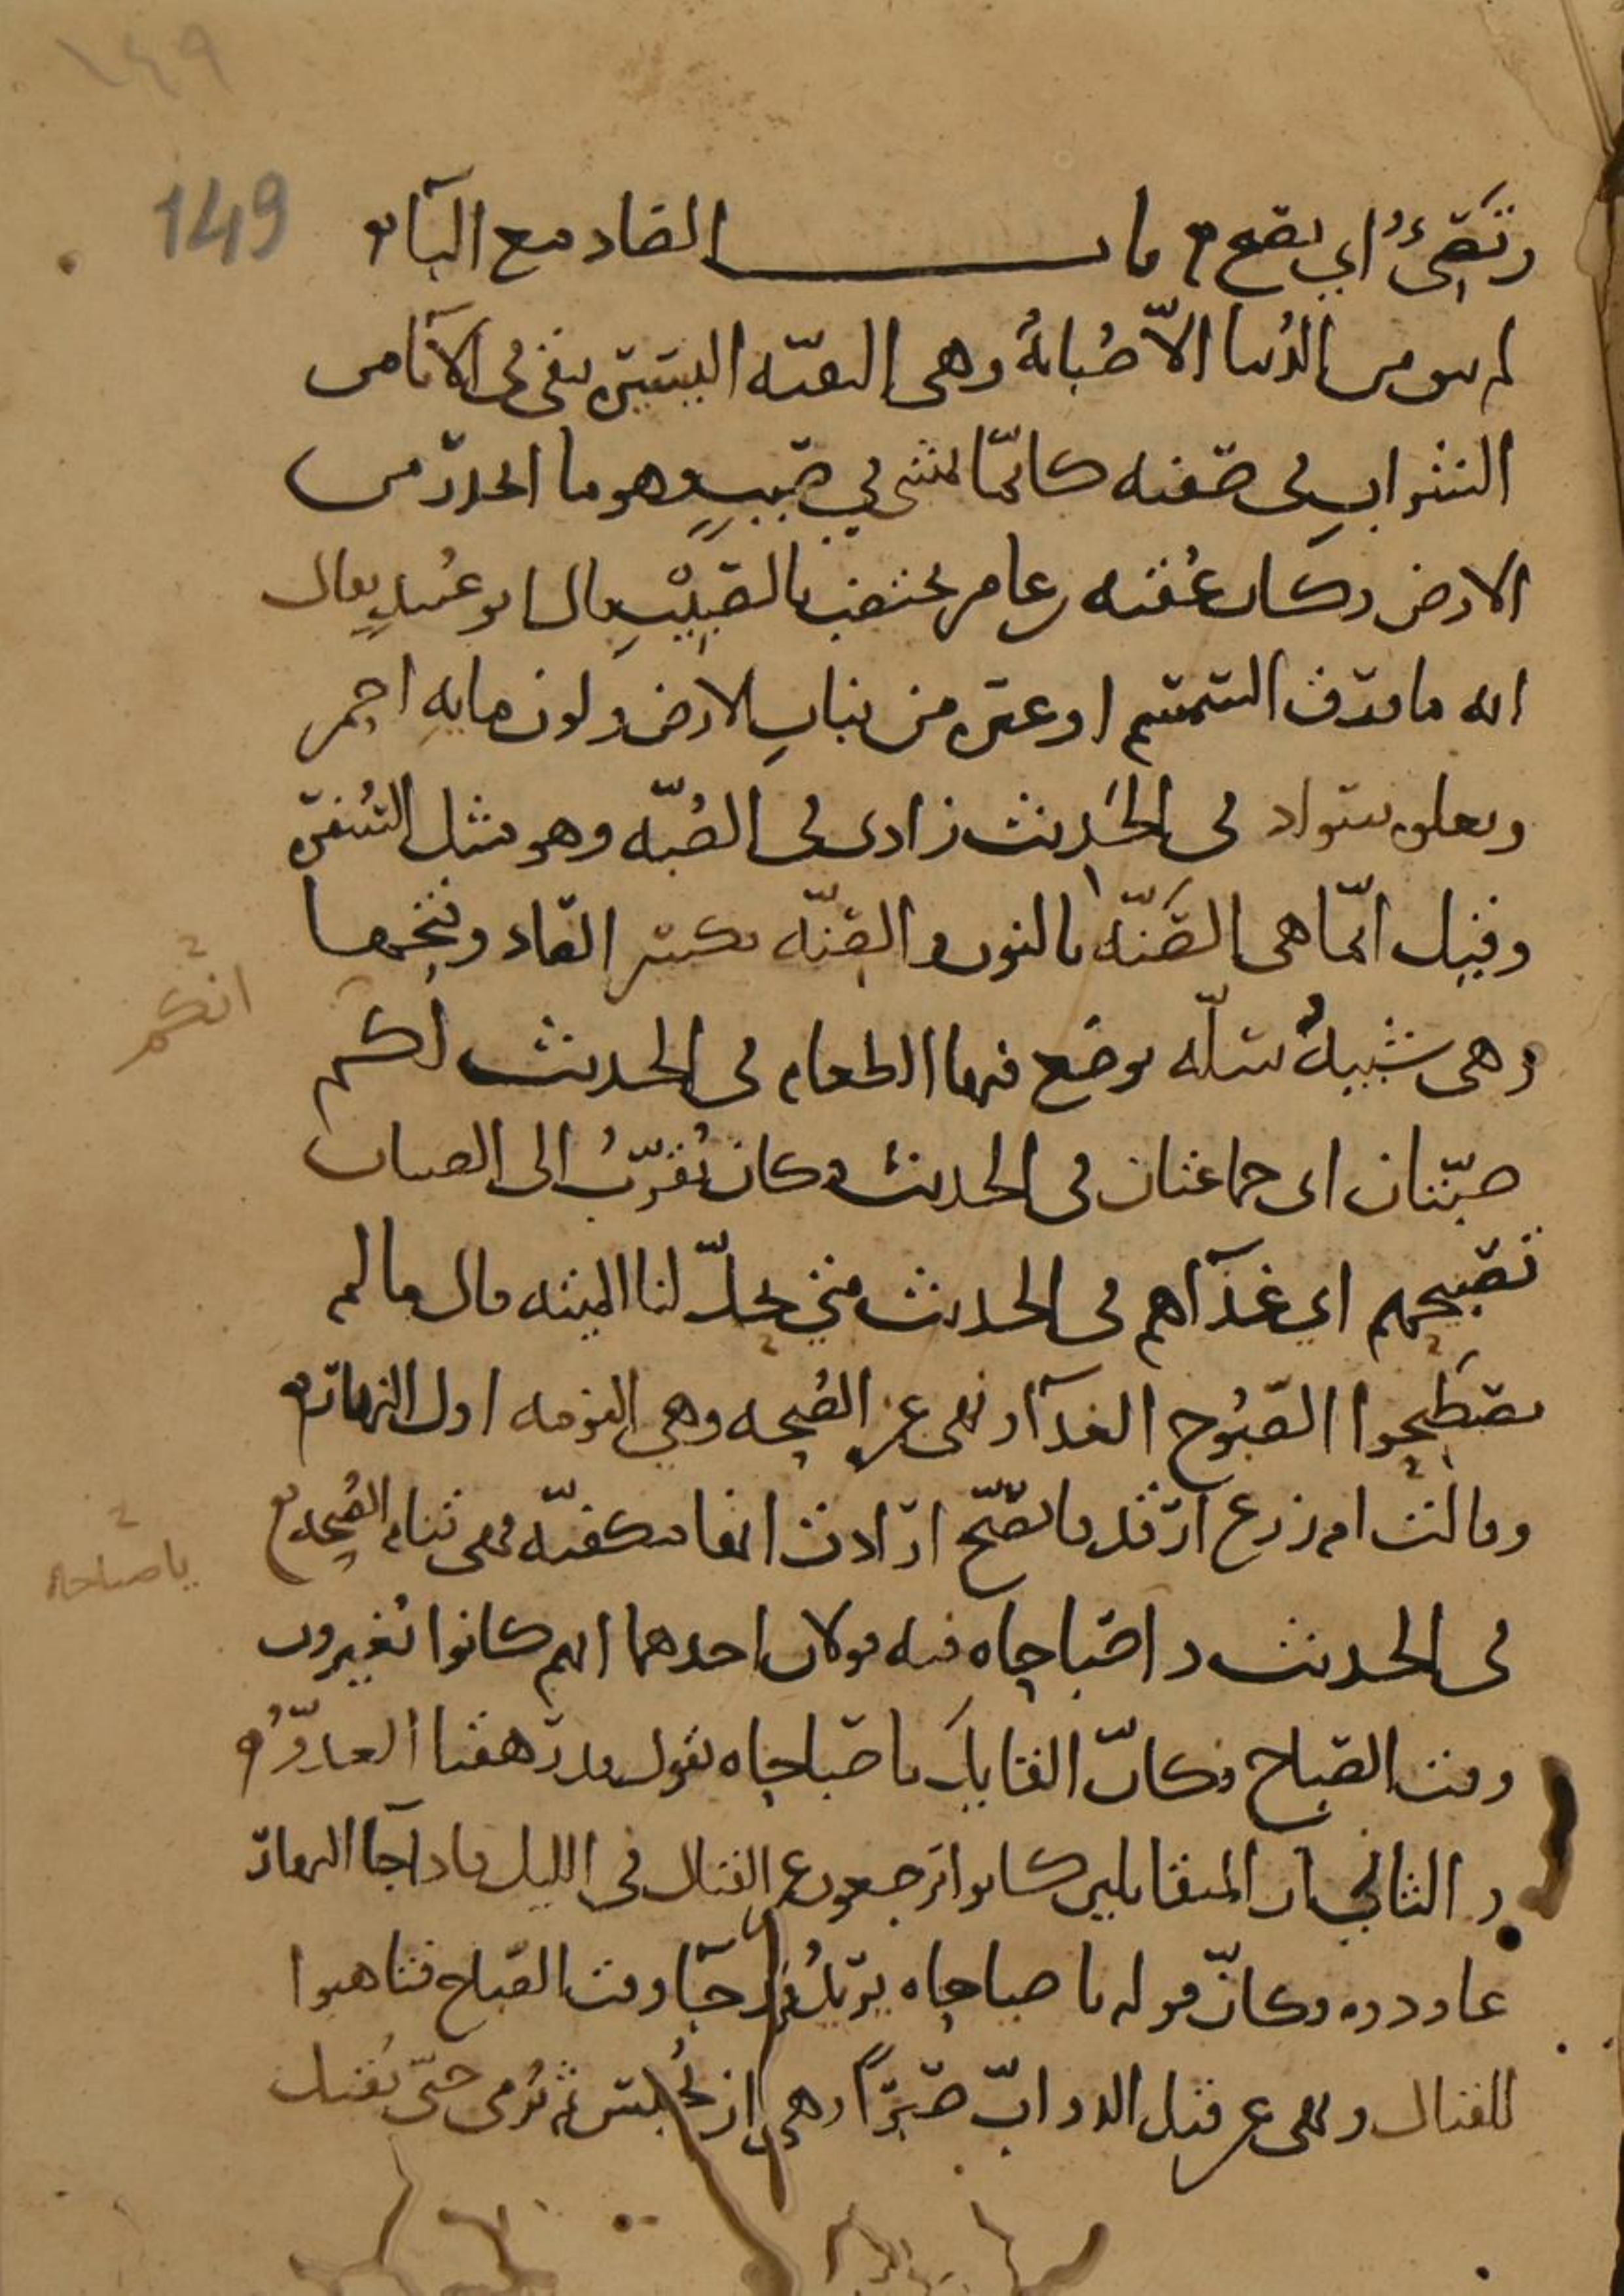 ١٤٩
149
وتقيء اي تصيح باب الصاد مع الباء
لم يبق من الدنيا الا صُبابةٌ وهي البقيّة اليسيرة تبقى في الاناء من
الشراب في صفته كانّما يمشي في صببٍ وهو ما انحدر من
الارض وكان عقبة بن عامر يختضب بالصَّبِيْبِ قال ابو عُبيدٍ يقال
انه ماء ورق السمسم او غيره من نباتِ الارض ولون مايهِ احمر
ويعلوه سواد في الحَدِيث زادي في الصُبّه وهو مثل السُفرة
وقيل انّما هي الصَنّه بالنون والصِنّه بكسر الصاد وفتحها
وهي شبيهُ سلّه يوضع فيها الطعام في الحديث لكم
انكم
صبّتان اي جماعتان في الحديث وكان يُقرّبُ الى الصبيان
تصبيحهم اي غدآهم في الحديث متى تحلّ لنا الميته قال ما لم
تصطَبِحوا الصّبُوح الغدآ ونهى عن الصُبحه وهي النومه اول النهار
وقالت ام زرع ارقد فاتصبّح ارادت انها مكفيّه فهي تنام الصُبحه
يا صباحاه
في الحديث واصباحاه فيه قولان احدهما انهم كانوا يُغيرون
وقت الصّباح فكانّ القايل يا صباحاه يقول قد رهقنا العدوّ
والثاني ان المتقاتلين كانوا يرجعون عن القتال في الليل فاذا جآ النهار
عاودوه فكانّ قوله يا صباحاه يريدُ قد جآ وقت الصّباح فتاهبوا
للقتال ونهى عن قتل الدوابّ صَبْرًا وهي ان تُحبس ثم تُرمى حتّى تقتل